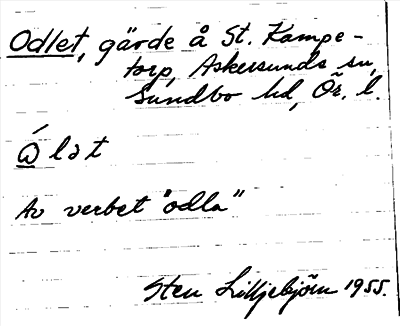 Odlet, gärde å St. Kampe-
torp, Askersunds sn,
Sundbo hd, Ör. l.
Av verbet "odla"
Sten Lilljebjörn 1955.